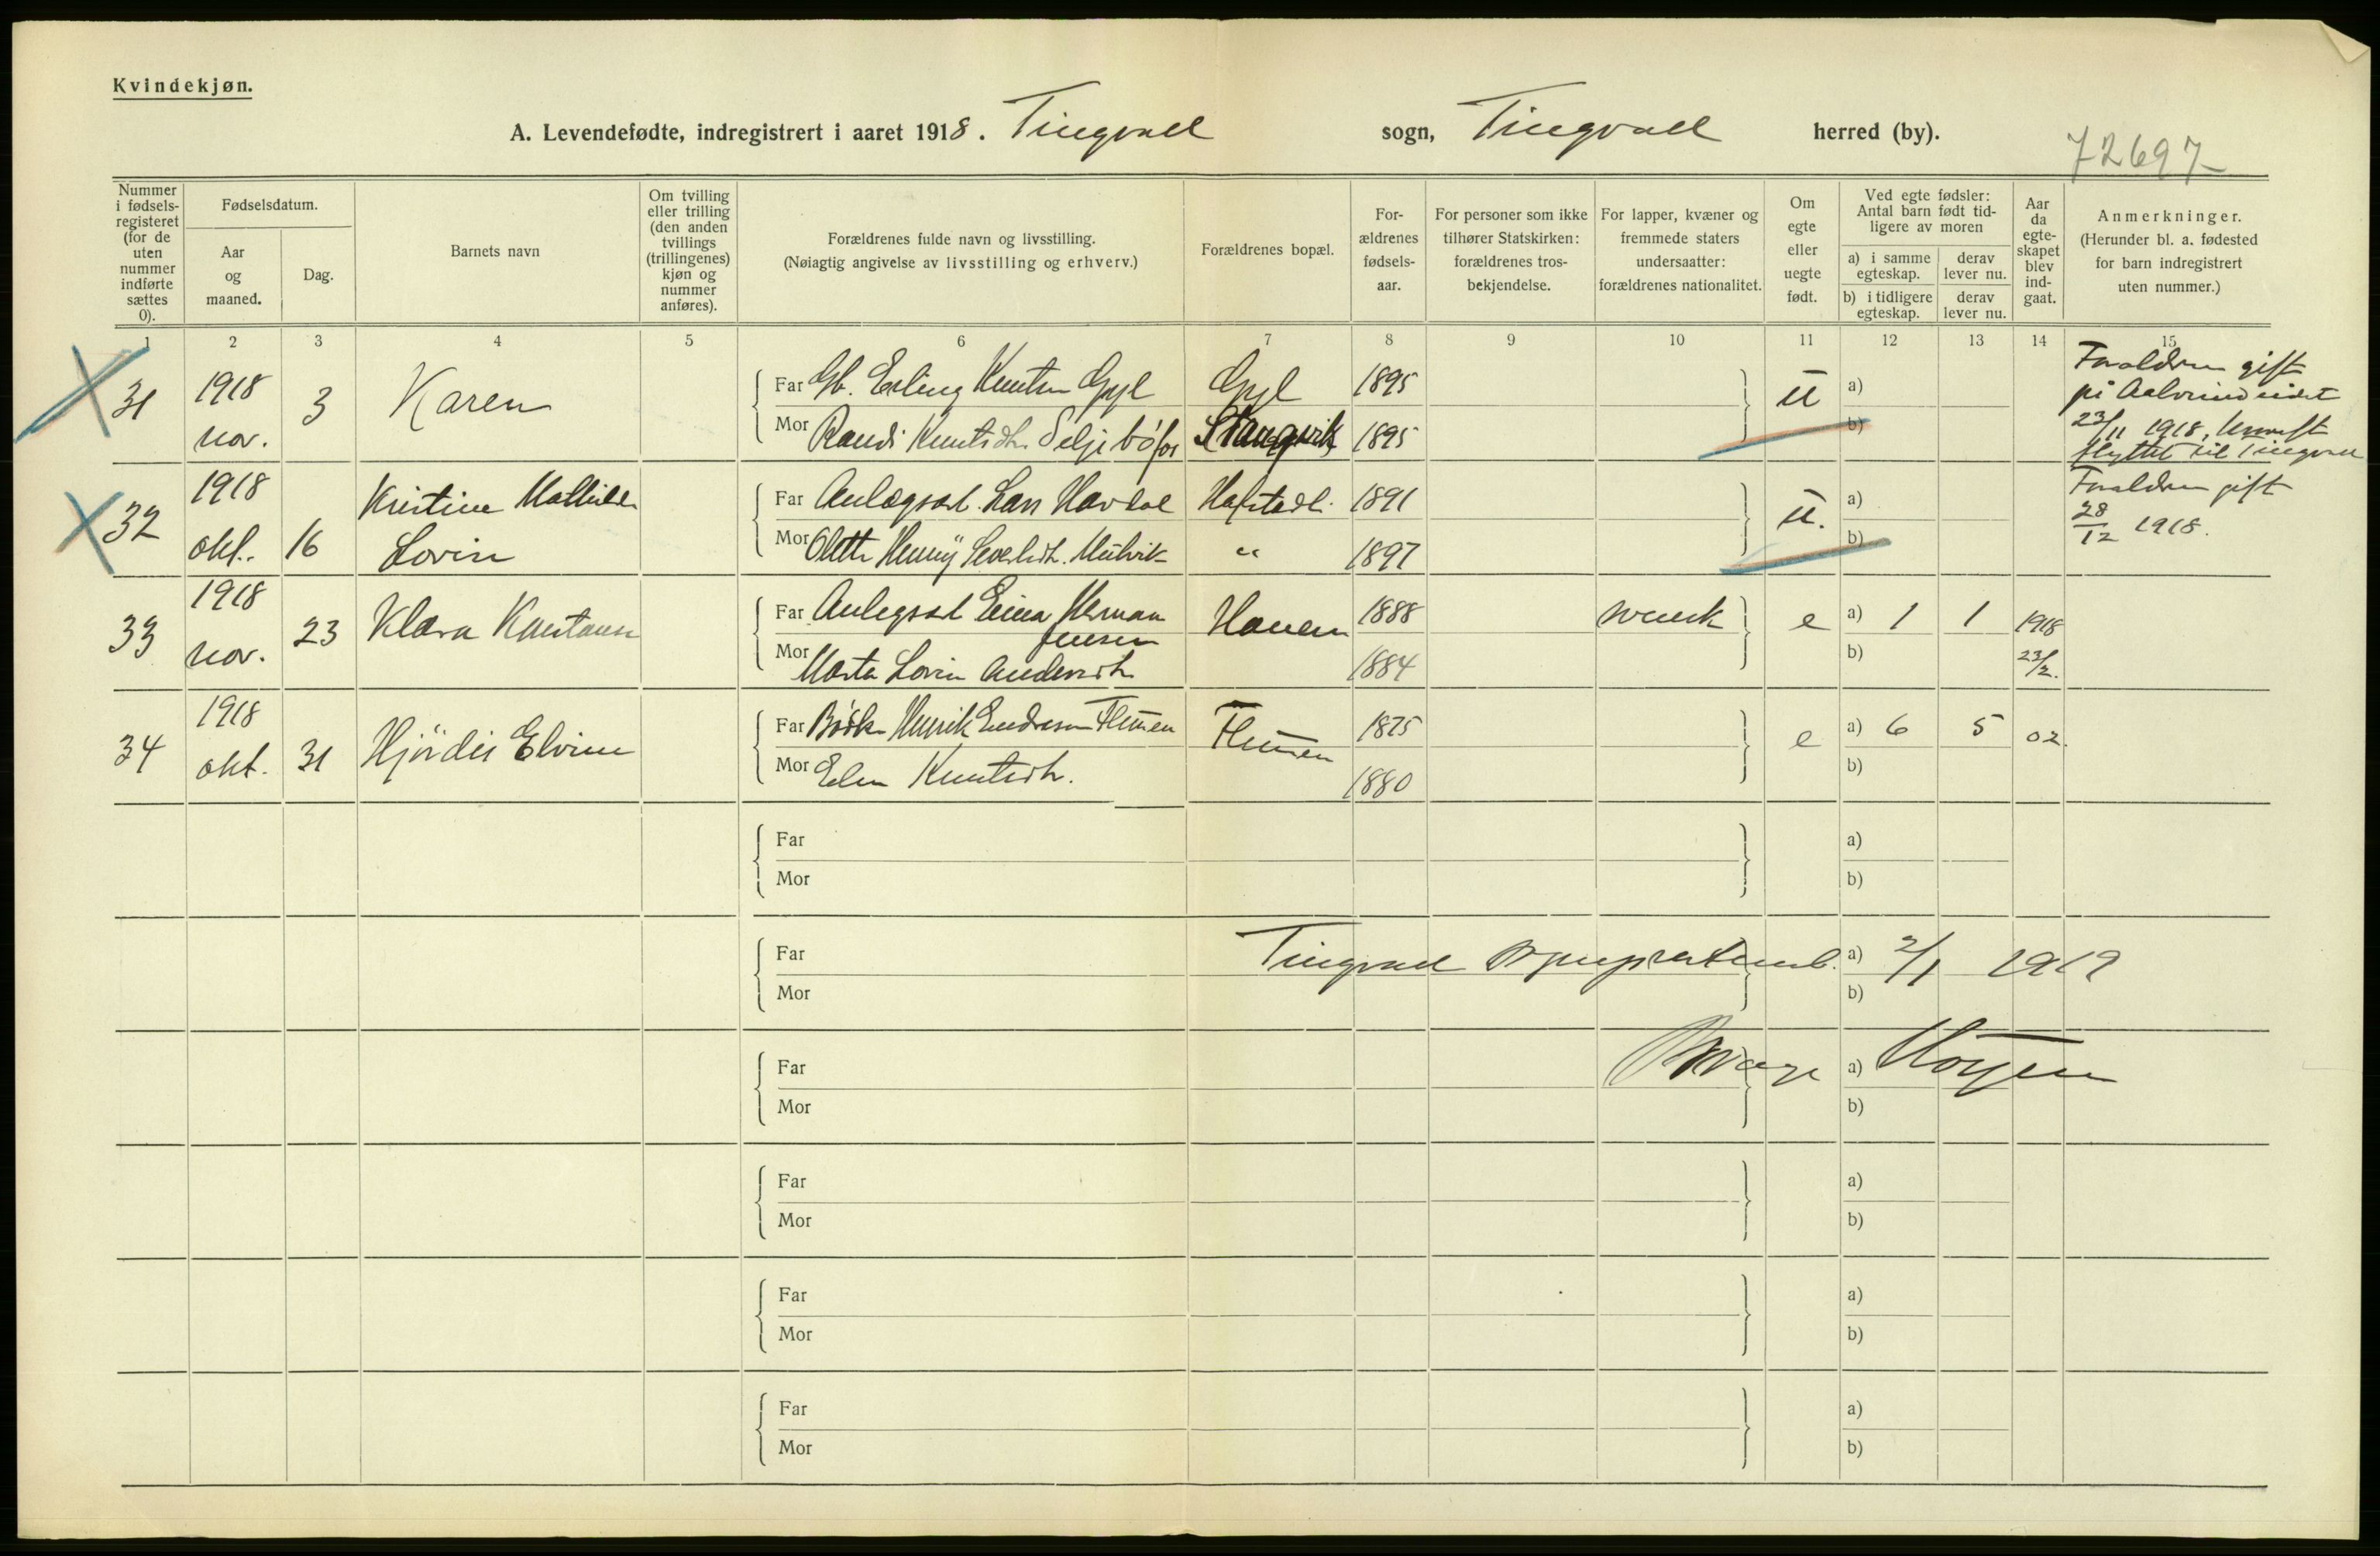 Kvindekjøn.
A. Levendefødte, indregistrert i aaret 1918. Tingvoll sogn, Tingvoll herred (by).
72697
Nummer i fødsels-registeret (for de uten nummer indførte sættes 0).
Fødselsdatum.
Aar og maaned.
Dag.
Barnets navn
Om tvilling eller trilling (den anden tvillings (trillingenes) kjøn og nummer anføres).
Forældrenes fulde navn og livsstilling.
(Nøiagtig angivelse av livsstilling og erhverv.)
Forældrenes bopæl.
For-ældrenes fødsels-aar.
For personer som ikke tilhører Statskirken: forældrenes tros-bekjendelse.
For lapper, kvæner og fremmede staters undersaatter: forældrenes nationalitet.
Om egte eller uegte født.
Ved egte fødsler: Antal barn født tid-ligere av moren
a) i samme egteskap.
derav lever nu.
b) i tidligere egteskap.
derav lever nu.
Aar da egte-skapet blev ind-gaat.
Anmerkninger.
(Herunder bl. a. fødested for barn indregistrert uten nummer.)
1 2 3 4 5 6 7 8 9 10 11 12 13 14 15
31 1918 nov. 3 Karen
Far Gb. Erling Knutsen Gyl Gyl 1895
Mor Randi Knutsdtr. Seljebø Stangvik 1895
u a) b)
Forældren gift
på
23/11 1918,
flyttet til Tingvoll
32 1918 okt. 16 Kristine Mathilde
Lovin
Far Lars Havdal Hafstadl. 1891
Mor Olette Henny " 1897
u. a) b)
Forældren gift
28/12 1918.
33 1918 nov. 23 Klara Konstanse
Far Einar Herman Jensen Hanem 1888
Mor Marta Lovin Andersdtr. 1884
svensk e a) 1 1 b) 1918 23/2.
34 1918 okt. 31 Hjördis Elvine
Far Henrik Endresen Flemmen Flemmen 1875
Mor Elen Knutsdtr. 1880
e a) 6 5 02. b)
Far a)
Mor b)
Far Tingvoll a) 2/1 1919
Mor b)
Far a)
Mor b)
Far a)
Mor b)
Far a)
Mor b)
Far a)
Mor b)